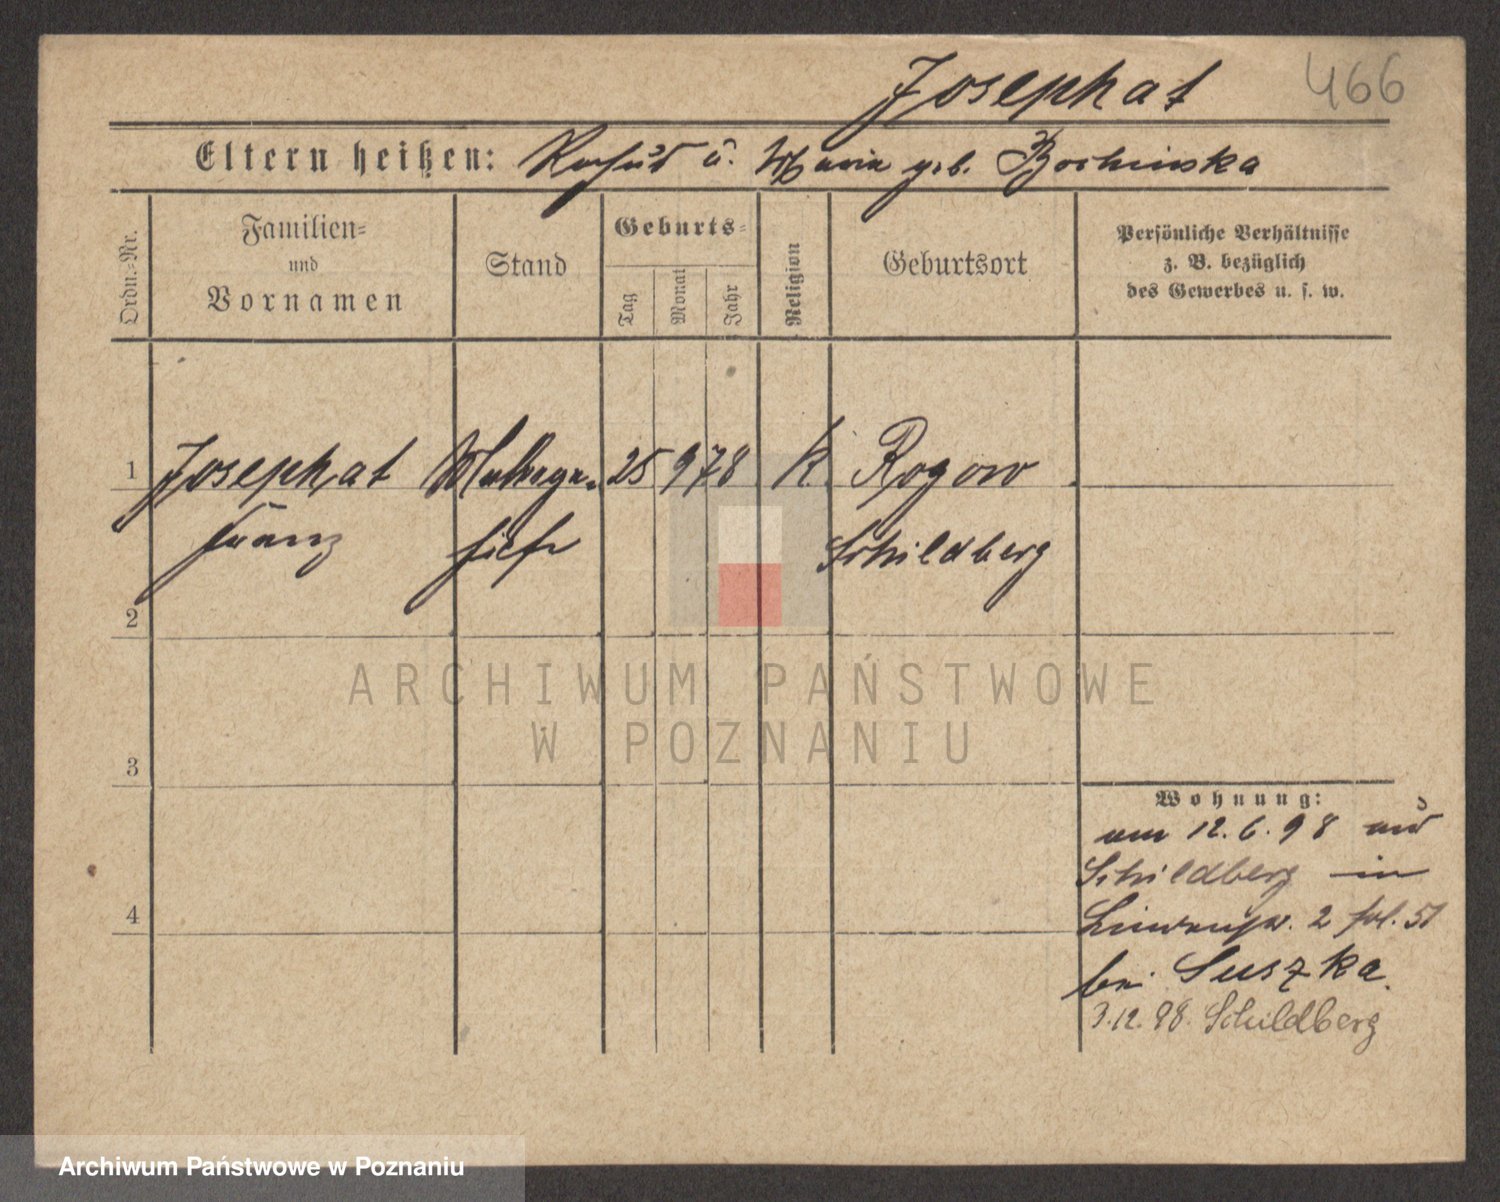 Josephat 466
Eltern heißen: u. Maria geb. Bochinska
Ordn.-Nr. Familien- und Vornamen Stand Geburts- Tag Monat Jahr Religion Geburtsort Persönliche Verhältnisse z. B. bezüglich des Gewerbes u. s. w.
1 Josephat 25 9 78 K. Rogow
Franz Schildberg
2
ARCHIWUM PAŃSTWOWE
W POZNANIU
3
Wohnung:
am 12.6.98 aus
Schildberg in
2 fol. 51
bei Suszka.
3.12.98. Schildberg
4
Archiwum Państwowe w Poznaniu